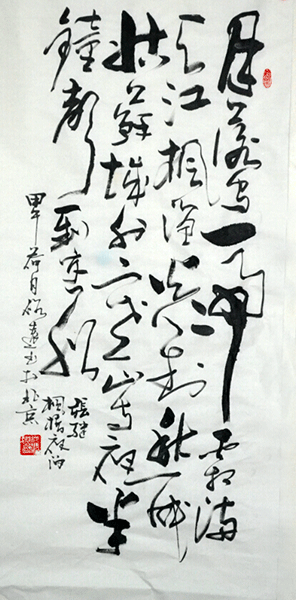 月落烏啼霜满
天江楓漁火对愁眠
姑蘇城外寒山寺夜半
鐘聲到客船
張継
楓橋夜泊
甲午荷月书於北京